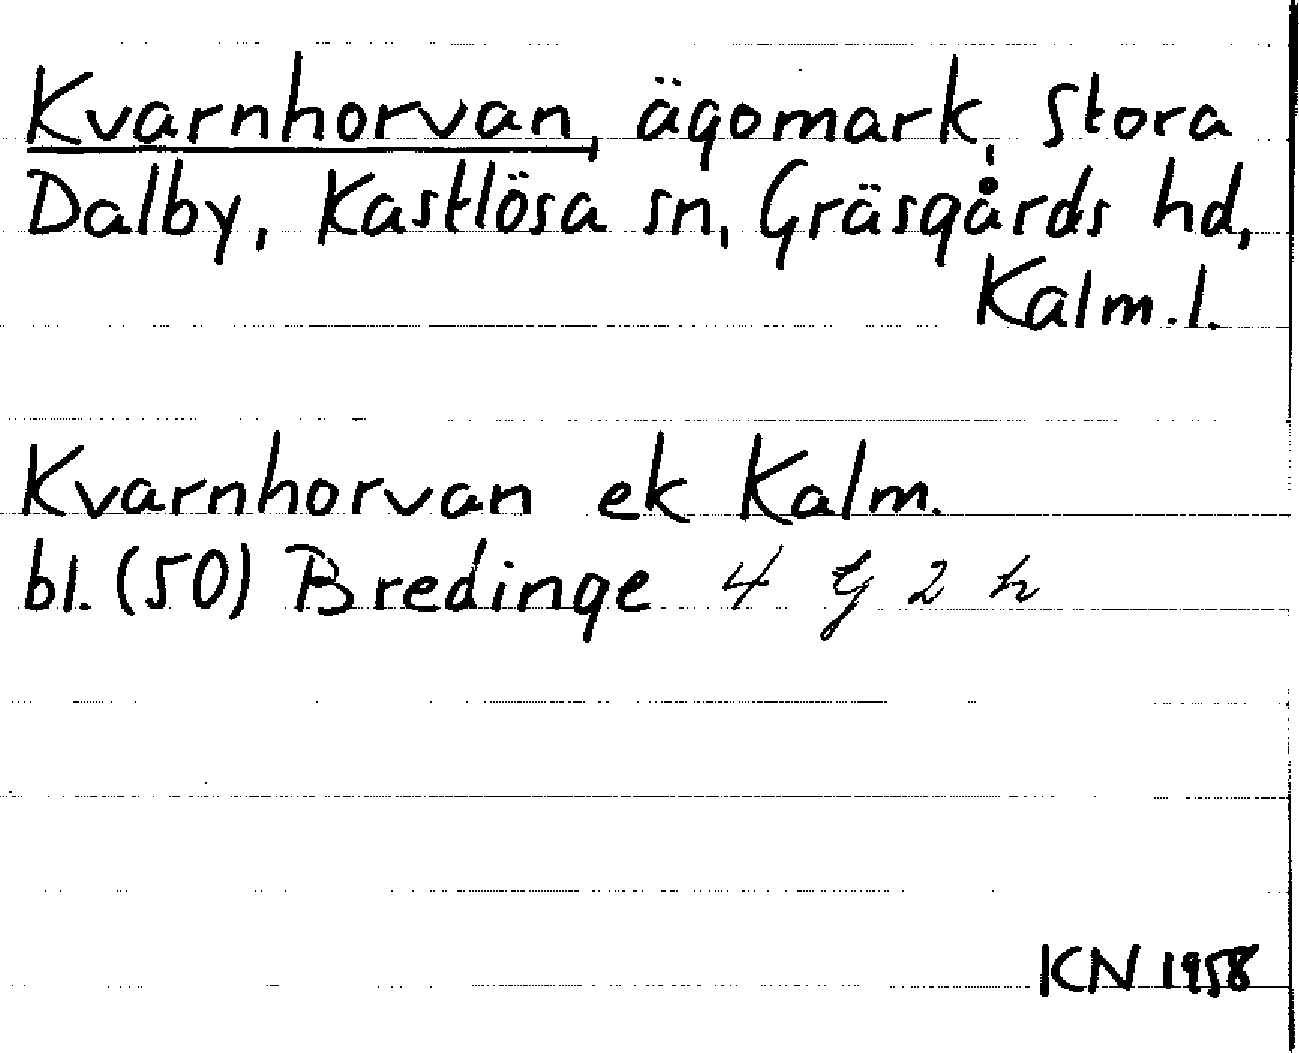 Kvarnhorvan, ägomark, Stora
Dalby, Kastlösa sn, Gräsgårds hd,
Kalm.l.
Kvarnhorvan ek Kalm.
bl. (50) Bredinge 4 G 2 h
KN 1958